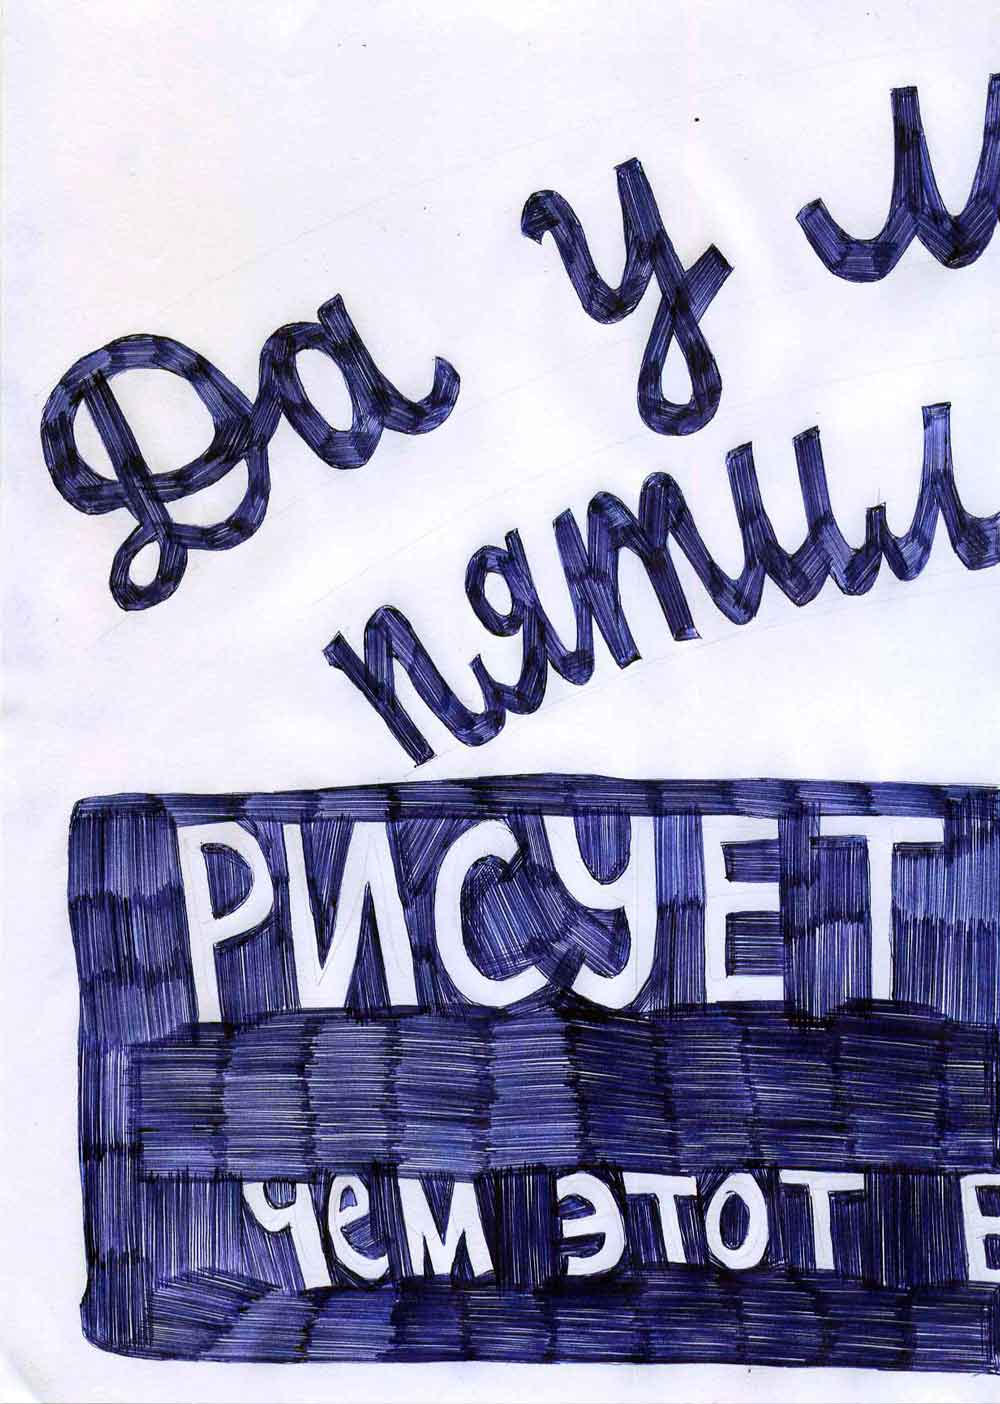 Да у м
пятил
РИСУЕТ
чем этот в